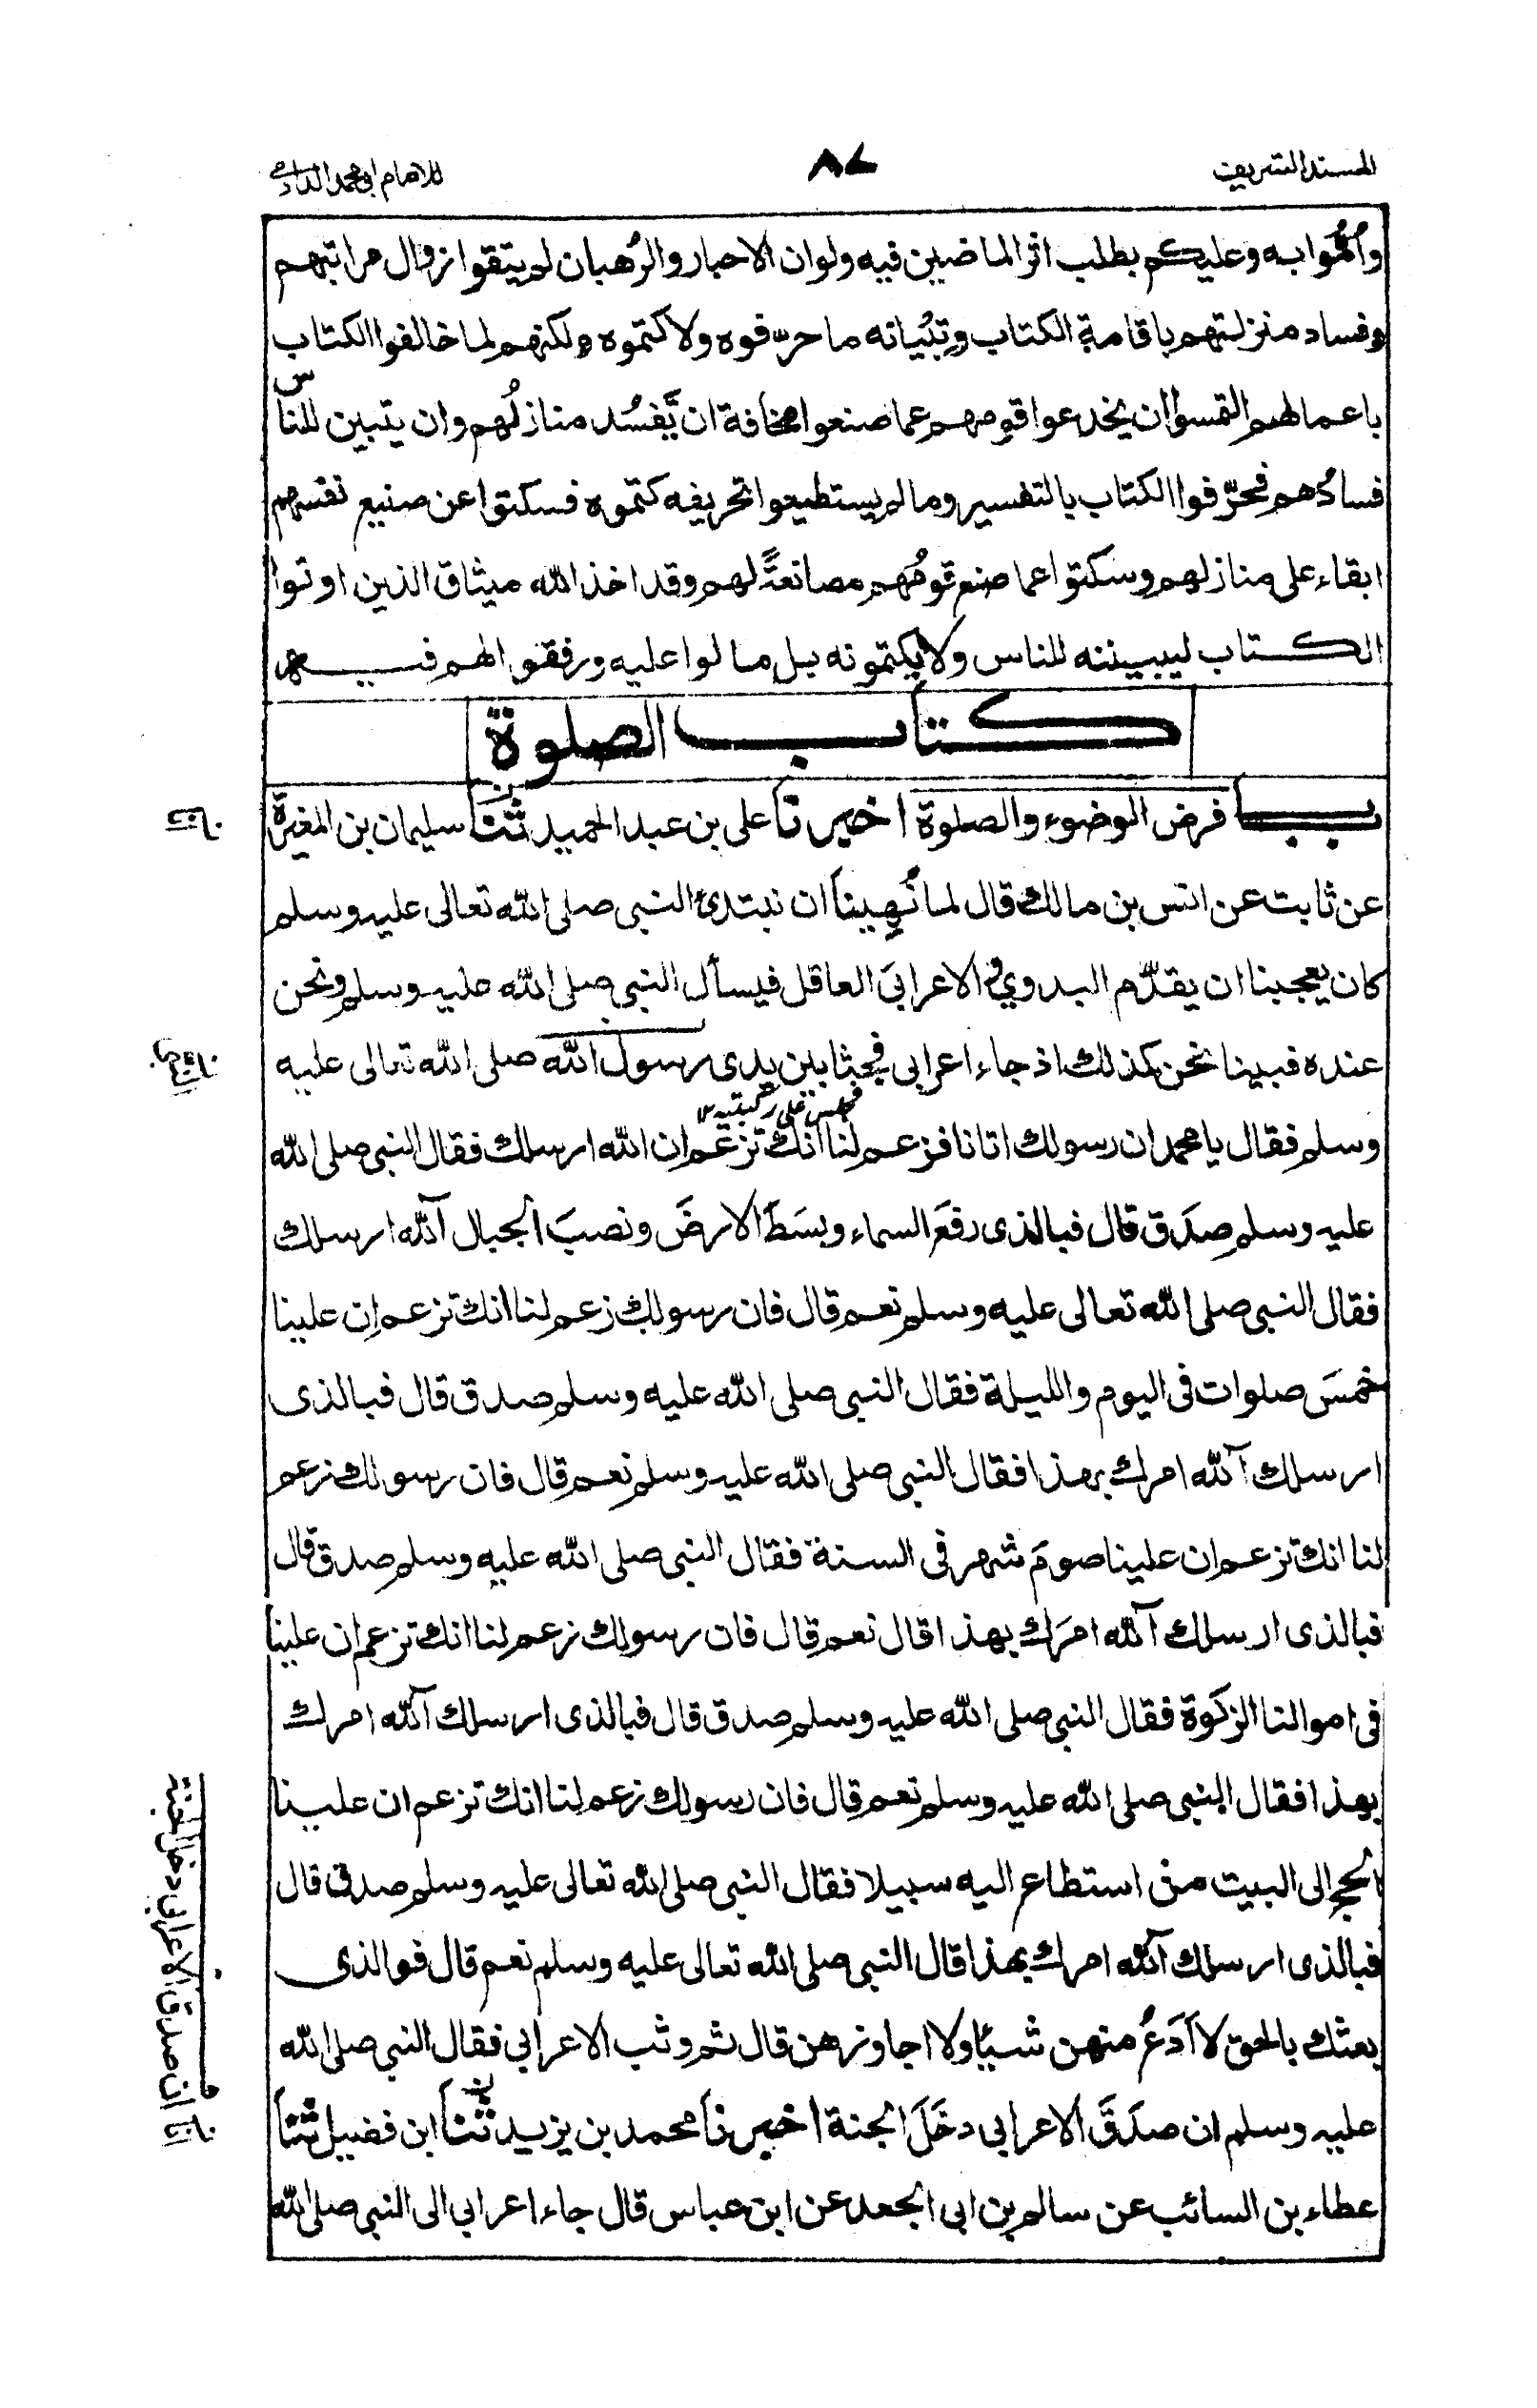 المسند الشريف
٨٧
للامام ابى محمد الدارمى
وأتمّوابه وعليكم بطلب اثر الماضين فيه ولو ان الاحبار والرُهبان لم يتقوا زوال مراتبهم
وفساد منزلتهم باقامة الكتاب وتِبْيانه ما حرّفوه ولا كتموه ولكنهم لما خالفوا الكتاب
باعمالهم التمسوا ان يخدعوا قومهم عما صنعوا مخافة ان تَفسُد منازلُهم وان يتبين للناس
فسادُهم فحرّفوا الكتاب بالتفسير وما لم يستطيعوا تحريفه كتموه فسكتوا عن صنيع نفسهم
ابقاء على منازلهم وسكتوا عما صنع قومُهم مصانعةً لهم وقد اخذ الله ميثاق الذين اوتوا
الكتاب ليبيننه للناس ولا يكتمونه بل مالوا عليه ورفقوا لهم فيه
كتاب الصلوة
باب فرض الوضوء والصلوة اخبرنا على بن عبد الحميد ثنا سليمان بن المغيرة
عن ثابت عن انس بن مالك قال لما نُهِينا ان نبتدئ النبى صلى الله تعالى عليه وسلم
كان يعجبنا ان يقدُم البدوي و الاعرابى العاقل فيسأل النبى صلى الله عليه وسلم ونحن
عنده فبينا نحن كذلك اذ جاء اعرابى فجثا بين يدى رسول الله صلى الله تعالى عليه
فجلس على ركبتيه ١٢
وسلم فقال يا محمد ان رسولك اتانا فزعم لنا انك تزعم ان الله ارسلك فقال النبى صلى الله
عليه وسلم صدَق قال فبالذى رفعَ السماء وبسَطَ الارضَ ونصبَ الجبال آلله ارسلك
فقال النبى صلى الله تعالى عليه وسلم نعم قال فان رسولك زعم لنا انك تزعم ان علينا
خمسَ صلوات فى اليوم والليلة فقال النبى صلى الله عليه وسلم صدق قال فبالذى
ارسلك آلله امرك بهذا فقال النبى صلى الله عليه وسلم نعم قال فان رسولك زعم
لنا انك تزعم ان علينا صومَ شهر فى السنة فقال النبى صلى الله عليه وسلم صدق قال
فبالذى ارسلك آلله امرَك بهذا قال نعم قال فان رسولك زعم لنا انك تزعم ان علينا
فى اموالنا الزكوة فقال النبى صلى الله عليه وسلم صدق قال فبالذى ارسلك آلله امرك
بهذا فقال النبى صلى الله عليه وسلم نعم قال فان رسولك زعم لنا انك تزعم ان علينا
الحج الى البيت من استطاع اليه سبيلا فقال النبى صلى الله تعالى عليه وسلم صدق قال
فبالذى ارسلك آلله امرك بهذا قال النبى صلى الله تعالى عليه وسلم نعم قال فوالذى
بعثك بالحق لا أدَعُ منهن شيئا ولا اجاوزهن قال ثم وثب الاعرابي فقال النبى صلى الله
عليه وسلم ان صدَقَ الاعرابى دخَلَ الجنة اخبرنا محمد بن يزيد ثنا ابن فضيل ثنا
عطاء بن السائب عن سالم بن ابى الجعد عن ابن عباس قال جاء اعرابي الى النبى صلى الله
ان صدق الاعرابى دخل الجنة